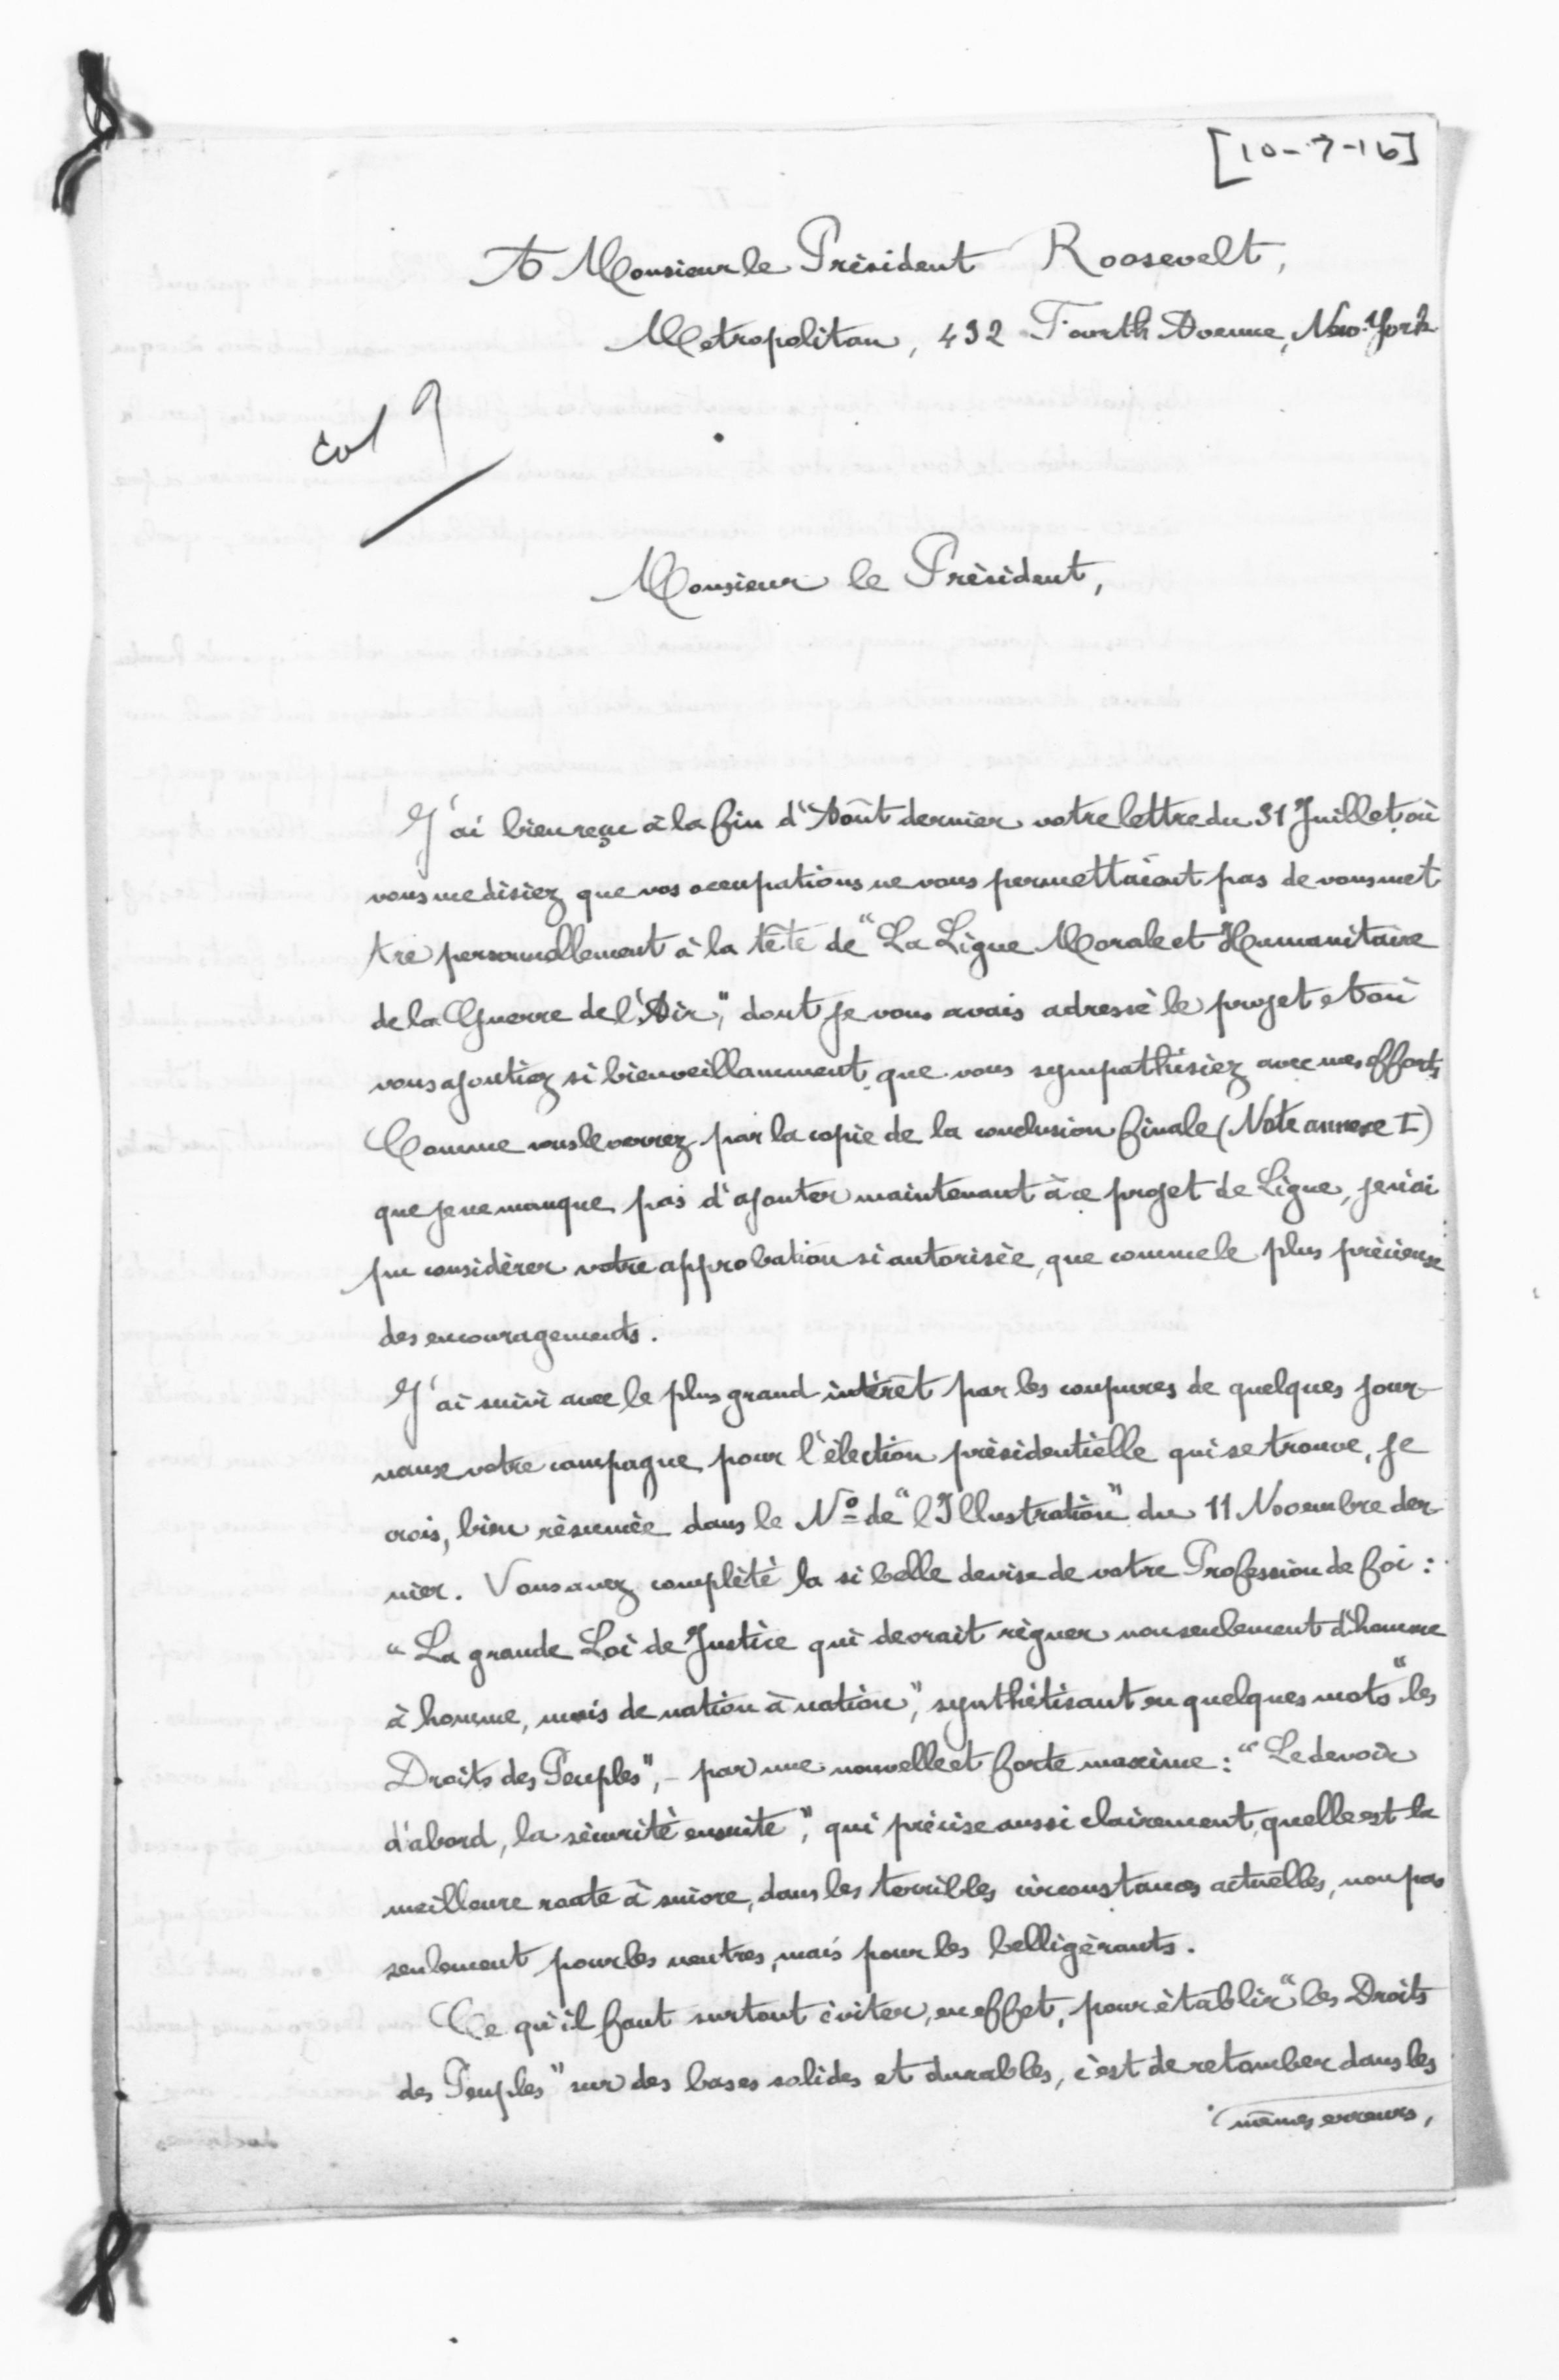 [10-7-16]
A Monsieur le Président Roosevelt,
Metropolitan, 432 Fourth Avenue, New-York
Monsieur le Président,
J'ai bien reçu à la fin d'Août dernier votre lettre du 31 Juillet, où
vous me disiez que vos occupations ne vous permettaient pas de vous met
tre personnellement à la tête de "La Ligue Morale et Humanitaire
de la Guerre de l'Air", dont je vous avais adressé le projet et où
vous ajoutiez si bienveillamment que vous sympathisiez avec mes efforts
Comme vous le verrez par la copie de la conclusion finale (Note annexe I)
que je ne manque pas d'ajouter maintenant à ce projet de Ligue, je n'ai
pu considérer votre approbation si autorisée, que comme le plus précieux
des encouragements.
J'ai suivi avec le plus grand intérêt par les coupures de quelques jour-
naux votre campagne pour l'élection présidentielle qui se trouve, je
crois, bien résumée dans le No de "l'Illustration" du 11 Novembre der-
nier. Vous avez complété la si belle devise de votre Profession de foi :
"La grande Loi de Justice qui devrait régner non seulement d'homme
à homme, mais de nation à nation", synthétisant en quelques mots "les
Droits des Peuples", - par une nouvelle et forte maxime : "Le devoir
d'abord, la sécurité ensuite", qui précise aussi clairement, quelle est la
meilleure route à suivre, dans les terribles circonstances actuelles, non pas
seulement pour les neutres, mais pour les belligérants.
Ce qu'il faut surtout éviter, en effet, pour établir "les Droits
des Peuples" sur des bases solides et durables, c'est de retomber dans les
mêmes erreurs,